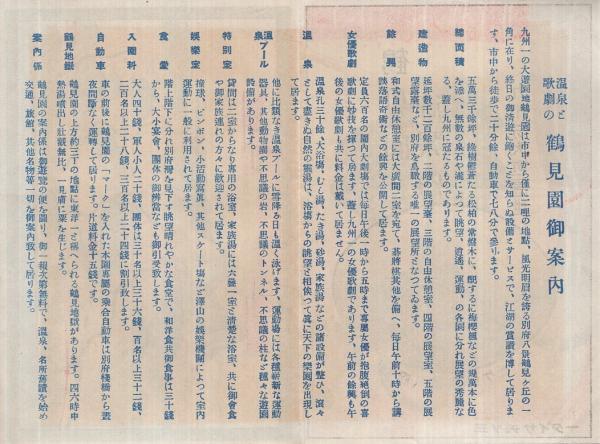 温泉と
歌劇の
鶴見園御案内
九州一の大遊園地鶴見園は市中から僅に二哩の地點、風光明眉を誇る別府八景鶴見ヶ丘の一
角に在り、終日の御清遊に飽くことを知らぬ設備とサービスで、江湖の賞讃を博して居りま
す、市中から徒歩で二十分餘、自動車で七八分で參ります。
總面積
五萬三千餘坪、綠樹鬱蒼たる松柏の常盤木に、配するに梅櫻楓などの幾萬本に色
を添へ、無數の泉石や瀧によつて眺望、逍遙、運動、の各園に分れ展望の秀麗な
る、蓋し九州に冠たるものであります。
建造物
延坪數千二百餘坪、二階の展望臺、三階の自由休憩室、四階の展望室、五階の展
望露臺など、別府を眞瞰する唯一の展望所となつてゐます。
餘興
和式自由休憩室には大廣間二室を宛て、碁將棋其他を備へ、毎日午前十時から講
談落語奇術などの餘興を公開して居ます。
女優歌劇
定員六百名の園内大劇場では毎日午後一時から五時まで專屬女優が抱腹絕倒の喜
歌劇に妙技を揮つて居ます、蓋し九州一の女優歌劇であります、午前の餘興も午
後の女優歌劇も共に料金は戴いて居ません。
溫泉
溫泉孔三十餘、大浴場、むし湯、たき湯、砂湯、家族湯などの諸設備が整ひ、滾々
として盡きぬ自然の靈湯は、浴場からの眺望と相俟つて眞に天下の樂園を出現し
て居ます。
溫泉プール
他に比類なき溫泉プールに雪降る日も溫く泳げます、運動場には各種嶄新な運動
器具、其他動物園や不思議の岩、不思議のトンネル、不思議の柱など種々な遊園
設備があります。
特別室
貸間は二室からなり專用の浴室、家族湯には六疊一室と清楚な浴室、共に御會食
や御家族連れの方々に歡迎されて居ます。
娛樂室
撞球、ピンポン、小活動寫眞、其他スケート場など澤山の娛樂機關によつて室内
運動に一般に利用されて居ます。
食堂
階上階下に分れ別府灣を見下す眺望晴れやかな食堂で、和洋食共御食事は三十錢
から、大小宴會、團体の御辨當なども御引受致します。
入園料
大人四十錢、軍人小人二十錢、團体は三十名以上三十六錢、百名以上三十二錢、
二百名以上二十八錢、三百名以上二十四錢に割引致します。
自動車
車の前後に鶴見園の「マーク」を入れた本園專屬の乘合自動車は別府棧橋から晝
夜間斷なく運轉して居ます。片道料金十五錢です。
鶴見地獄
鶴見園の上方約三丁の地點に東洋一と稱へらる鶴見地獄があります。四六時中
熱湯噴出し壯觀無比、一見膚に粟を生じます。
案内係
鶴見園の案内係は御遊覽の便を圖り、御一報次第無料で、溫泉、名所舊蹟を始め
交通、旅館、其他名物等一切を御案内致して居ります。